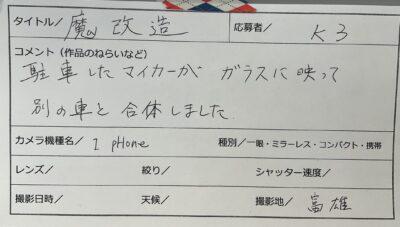 タイトル／魔改造 応募者／K3
コメント（作品のねらいなど）
駐車したマイカーが ガラスに映って
別の車と合体しました
カメラ機種名／I pHone 種別／一眼・ミラーレス・コンパクト・携帯
レンズ／ 絞り／ シャッター速度／
撮影日時／ 天候／ 撮影地／富雄